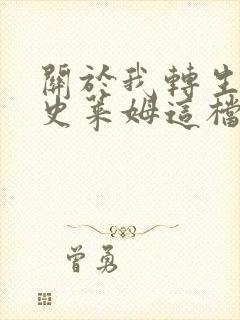 關於我轉生
史萊姆這檔
曾勇